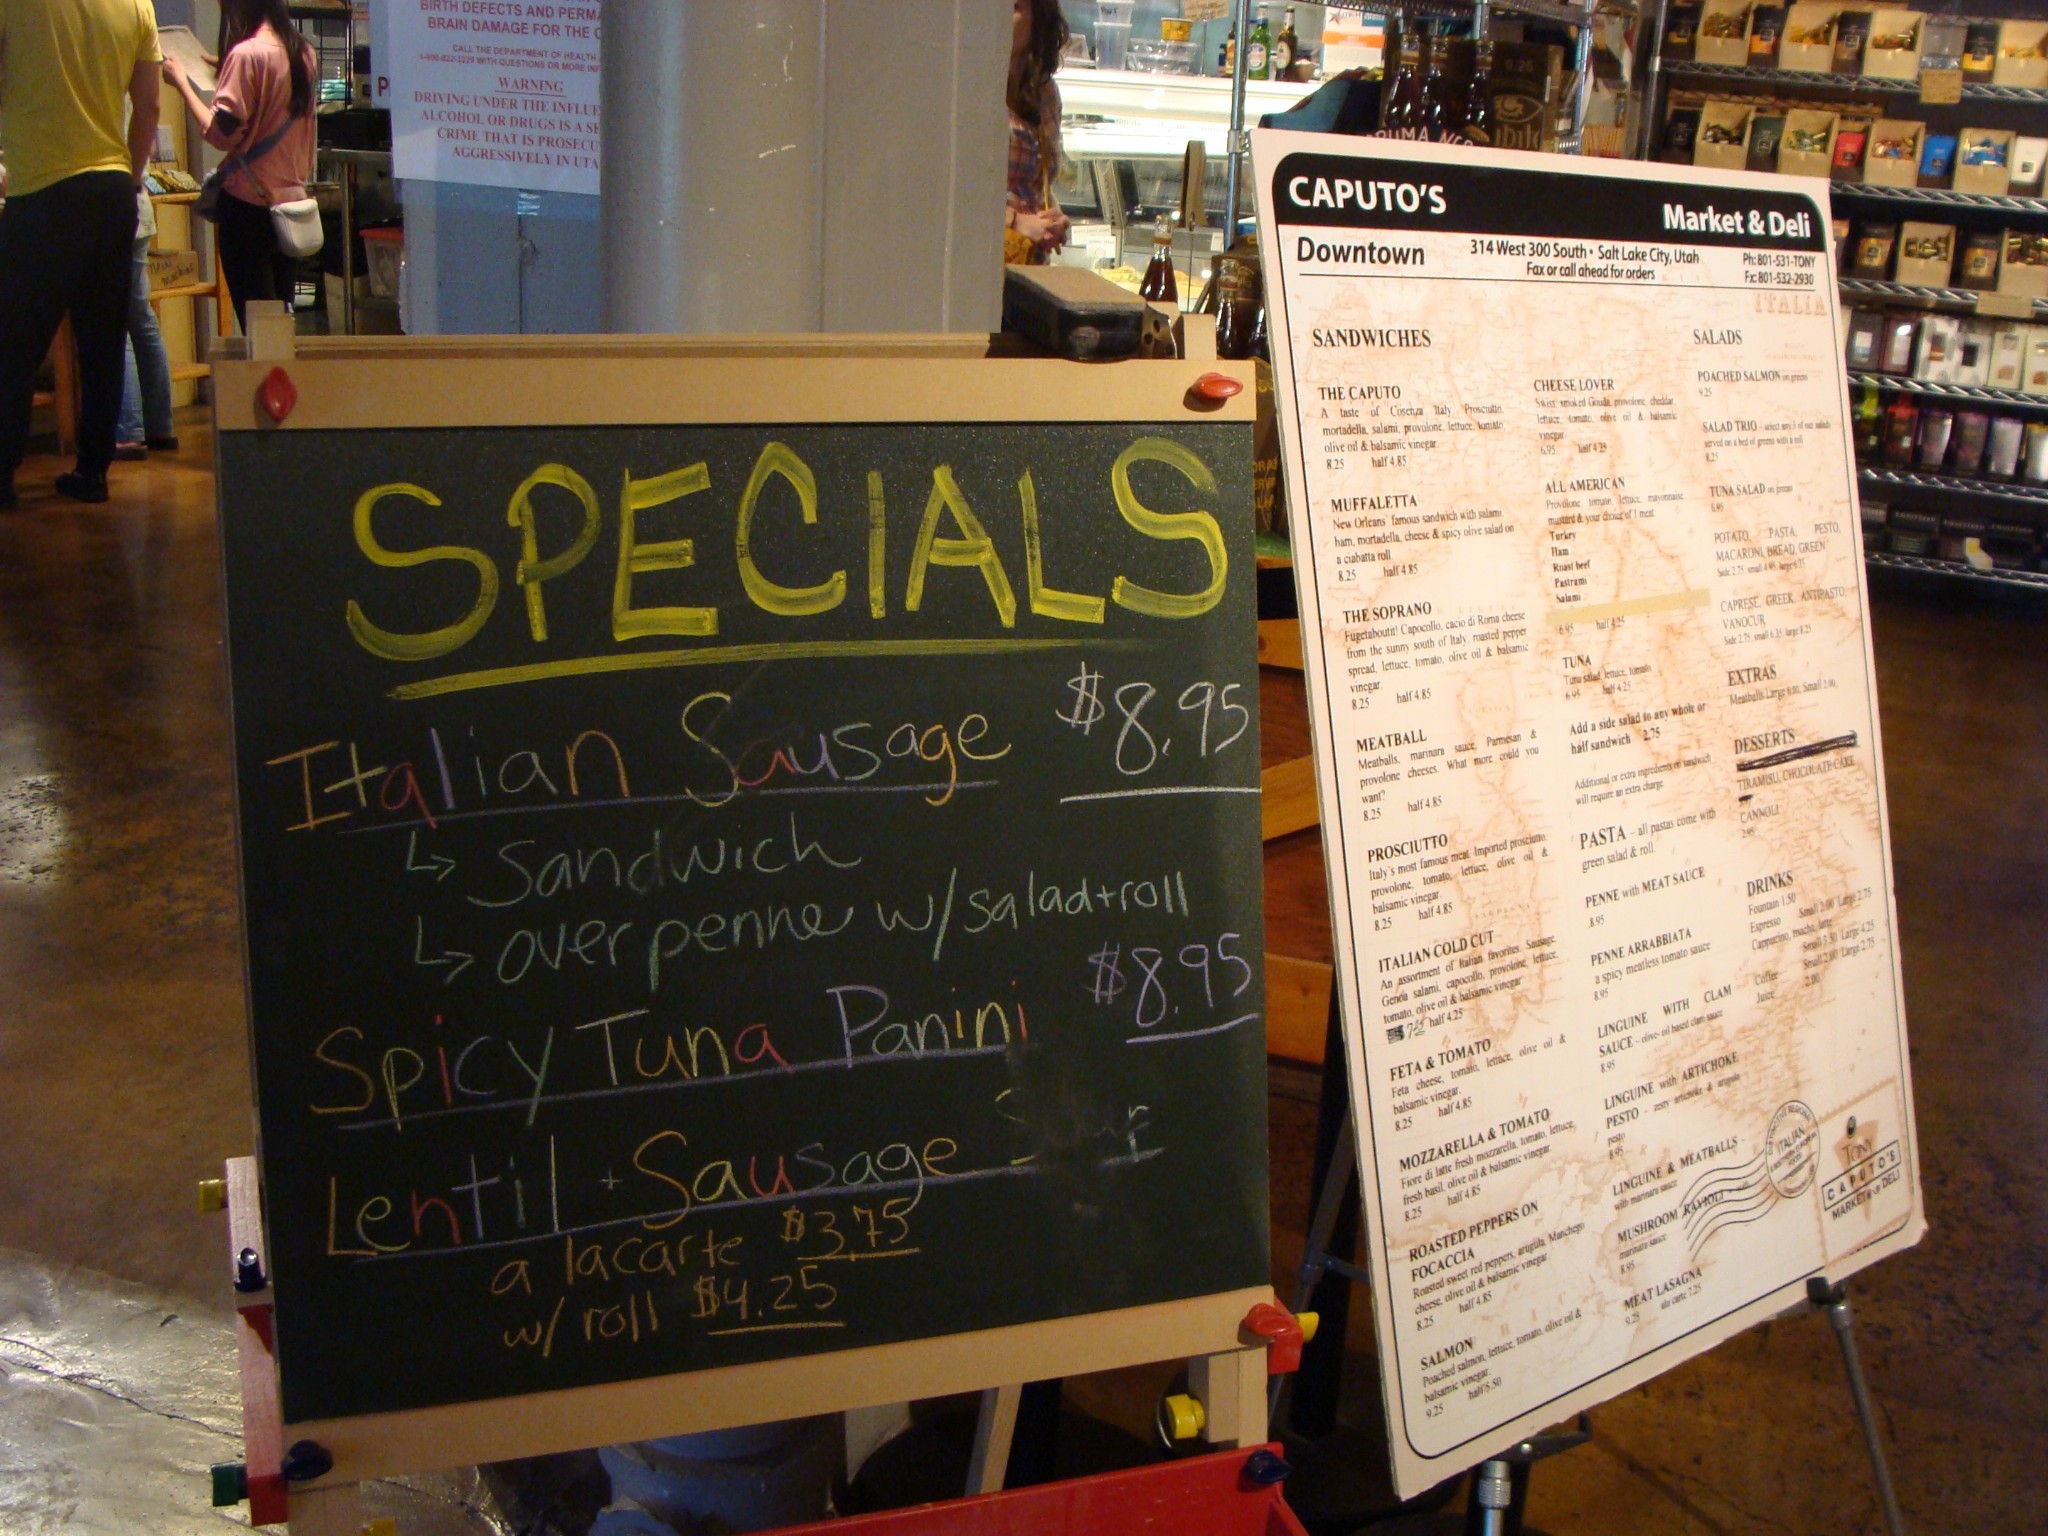 BIRTH DEFECTS AND PERMA
BRAIN DAMAGE FOR THE
CALL THE DEPARTMENT OF HEALTH
WITH QUESTIONS OR MORE INF
WARNING
DRIVING UNDER THE INFLUE
ALCOHOL OR DRUGS IS A SE
CRIME THAT IS PROSECU
AGGRESSIVELY IN UTA
SPECIALS
Italian Sausage $8.95
↳ Sandwich
↳ over penne w/salad+roll
Spicy Tuna Panini $8.95
Lentil + Sausage
a lacarte $3.75
w/ roll $4.25
CAPUTO'S
Market & Deli
Downtown
314 West 300 South • Salt Lake City, Utah
Fax or call ahead for orders
Ph: 801-531-TONY
Fx: 801-532-2930
ITALIA
SANDWICHES
THE CAPUTO
A taste of Cosenza Italy. Prosciutto,
mortadella, salami, provolone, lettuce, tomato,
olive oil & balsamic vinegar.
8.25 half 4.85
MUFFALETTA
New Orleans' famous sandwich with salami,
ham, mortadella, cheese & spicy olive salad on
a ciabatta roll.
8.25 half 4.85
THE SOPRANO
Fugetaboutit! Capocollo, cacio di Roma cheese
from the sunny south of Italy, roasted pepper
spread, lettuce, tomato, olive oil & balsamic
vinegar.
8.25 half 4.85
MEATBALL
Meatballs, marinara sauce, Parmesan &
provolone cheeses. What more could you
want?
8.25 half 4.85
PROSCIUTTO
Italy's most famous meat. Imported prosciutto,
provolone, tomato, lettuce, olive oil &
balsamic vinegar.
8.25 half 4.85
ITALIAN COLD CUT
An assortment of Italian favorites. Sausage,
Genoa salami, capocollo, provolone, lettuce,
tomato, olive oil & balsamic vinegar
half 4.25
FETA & TOMATO
Feta cheese, tomato, lettuce, olive oil &
balsamic vinegar.
8.25 half 4.85
MOZZARELLA & TOMATO
Fiore di latte fresh mozzarella, tomato, lettuce,
fresh basil, olive oil & balsamic vinegar.
8.25 half 4.85
ROASTED PEPPERS ON
FOCACCIA
Roasted sweet red peppers, arugula, Manchego
cheese, olive oil & balsamic vinegar.
8.25 half 4.85
SALMON
Poached salmon, lettuce, tomato, olive oil &
balsamic vinegar.
9.25 half 5.50
CHEESE LOVER
Swiss, smoked Gouda, provolone, cheddar,
lettuce, tomato, olive oil & balsamic
vinegar.
6.95 half 4.25
ALL AMERICAN
Provolone, tomato, lettuce, mayonnaise
mustard & your choice of 1 meat.
Turkey
Ham
Roast beef
Pastrami
Salami
6.95 half 4.25
TUNA
Tuna salad, lettuce, tomato
6.95 half 4.25
Add a side salad to any whole or
half sandwich 2.75
Additional or extra ingredients on sandwich
will require an extra charge.
PASTA – all pastas come with
green salad & roll.
PENNE with MEAT SAUCE
8.95
PENNE ARRABBIATA
a spicy meatless tomato sauce
8.95
LINGUINE WITH CLAM
SAUCE - olive-oil based clam sauce
8.95
LINGUINE with ARTICHOKE
PESTO – zesty artichoke & arugula
pesto
8.95
LINGUINE & MEATBALLS –
with marinara sauce
MUSHROOM RAVIOLI –
marinara sauce
8.95
MEAT LASAGNA
9.25 ala carte 7.25
SALADS
POACHED SALMON on greens
9.25
SALAD TRIO – select any 3 of our salads
served on a bed of greens with a roll
8.25
TUNA SALAD on greens
8.95
POTATO, PASTA, PESTO,
MACARONI, BREAD, GREEN
Side 2.75 small 4.95 large 6.35
CAPRESE, GREEK, ANTIPASTO,
VANOCUR
Side 2.75 small 6.35 large 8.25
EXTRAS
Meatballs Large 6.00, Small 2.00
DESSERTS
TIRAMISU, CHOCOLATE CAKE
CANNOLI
2.95
DRINKS
Fountain 1.50
Espresso Small 2.00 Large 2.75
Cappucino, mocha, latte
Small 3.50 Large 4.25
Coffee Small 2.00 Large 2.75
Juice 2.00
ITALIAN
TONY
CAPUTO'S
MARKET & DELI